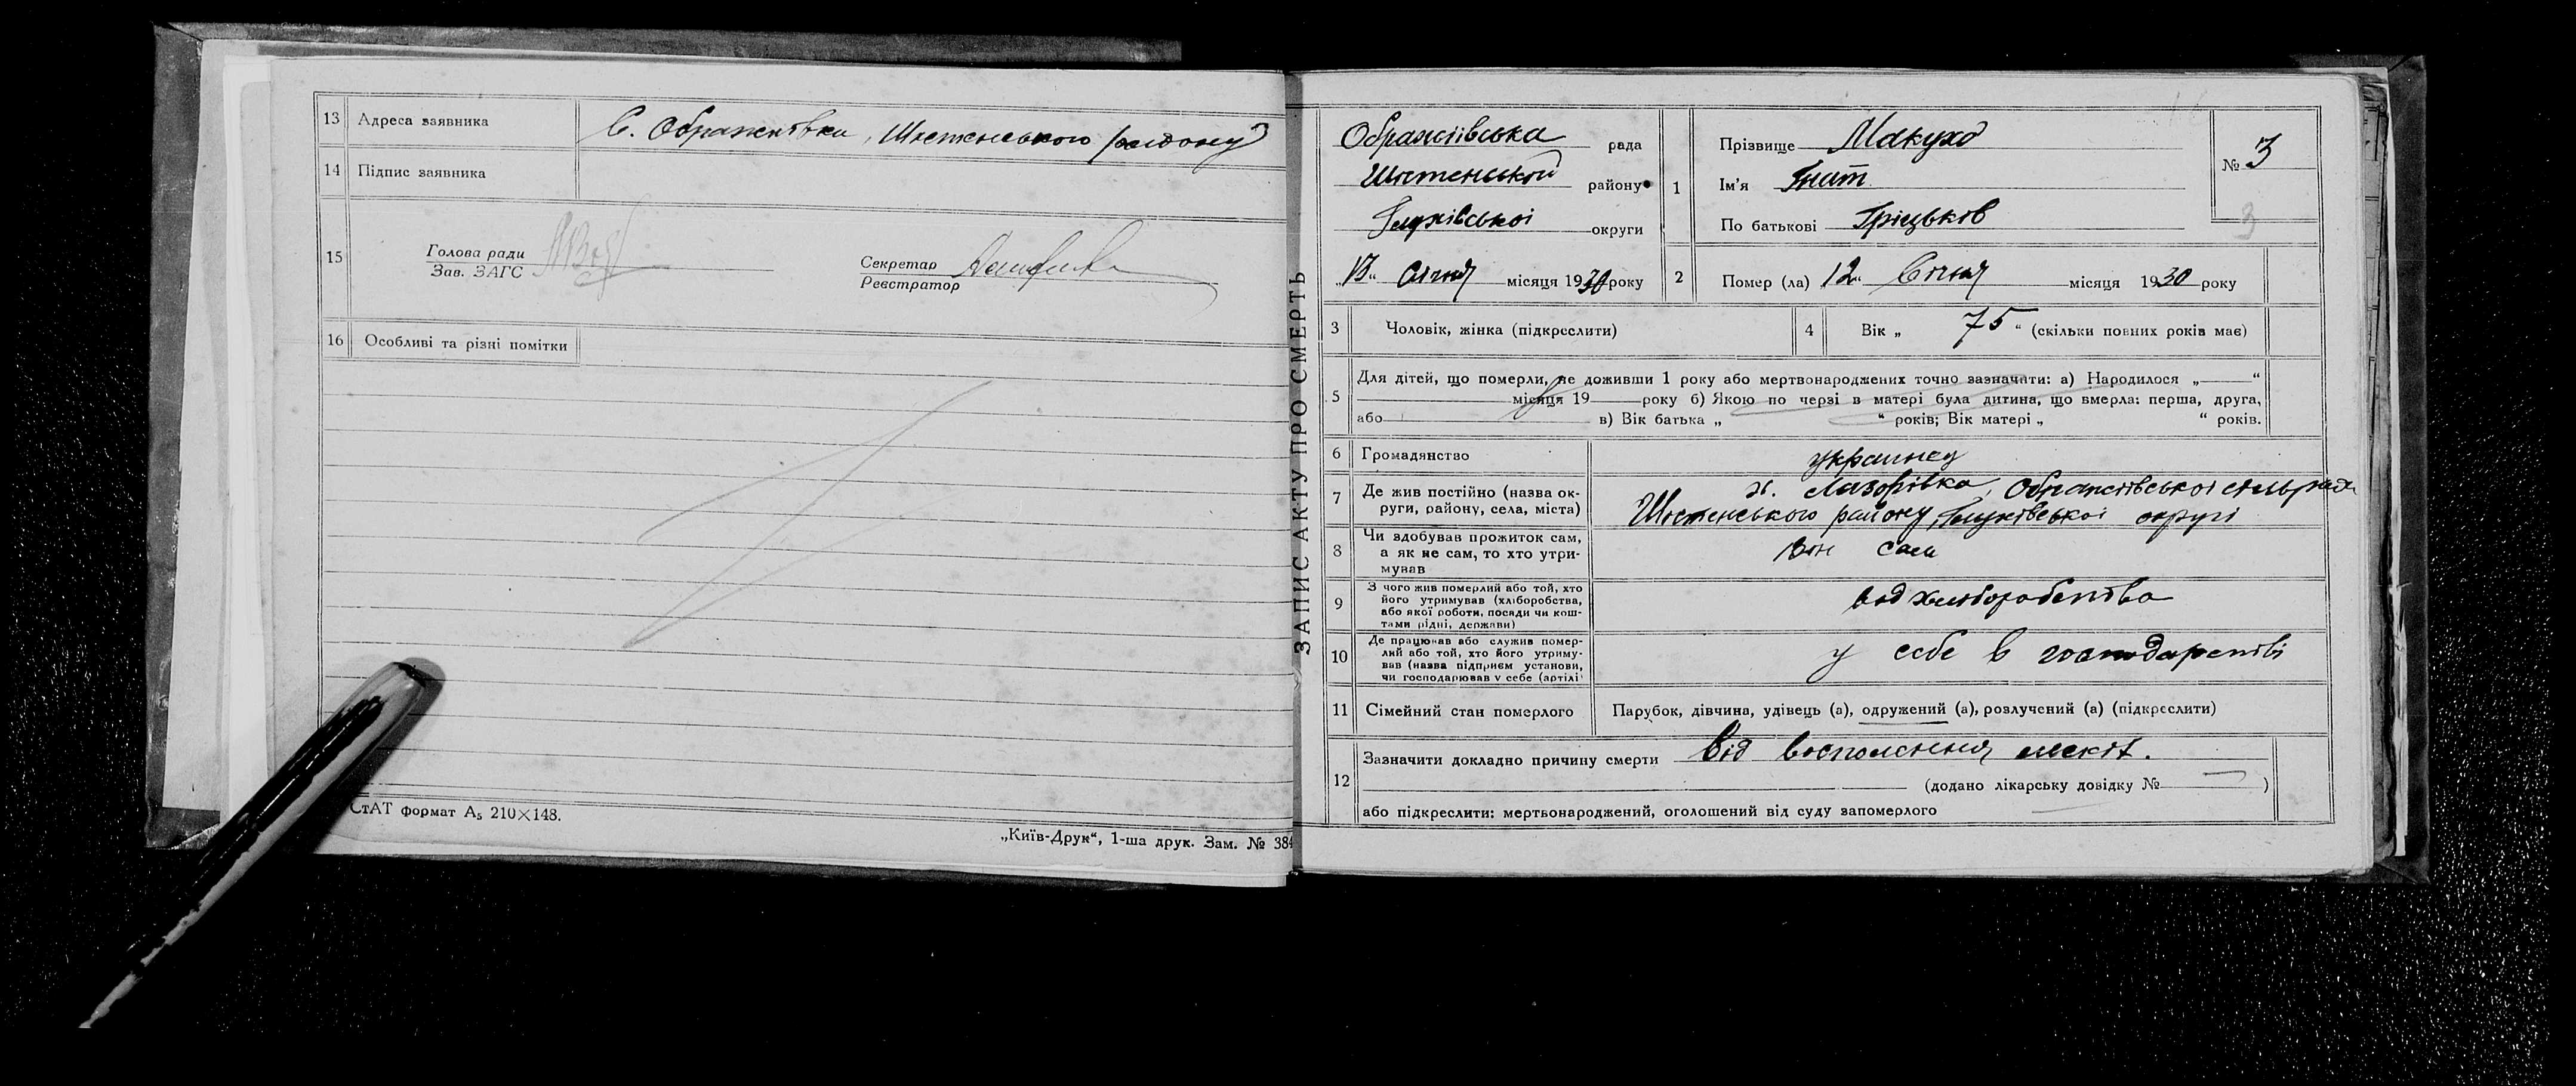 13 Адреса заявника С. Ображіївка, Шостенського району
14 Підпис заявника
15 Голова ради
Зав. ЗАГС
Секретар
Реєстратор
16 Особливі та різні помітки
СтАТ формат А₅ 210×148.
„Київ-Друк“, 1-ша друк. Зам. № 384
ЗАПИС АКТУ ПРО СМЕРТЬ
Ображіївська рада
Шостенський району
Глухівської округи
„13“ Січня місяця 1930 року
1 Прізвище Макуха
Ім'я Гнат
По батькові Гріцьків
№ 3
3
2 Помер (ла) „12“ Січня місяця 1930 року
3 Чоловік, жінка (підкреслити)
4 Вік „75“ (скільки повних років має)
5 Для дітей, що померли, не доживши 1 року або мертвонароджених точно зазначити: а) Народилося „ “
місяця 19 року б) Якою по черзі в матері була дитина, що вмерла: перша, друга,
або в) Вік батька „ “ років; Вік матері „ “ років.
6 Громадянство украинец
7 Де жив постійно (назва ок-
руги, району, села, міста)
х. Лазорівка, Ображіївської сільради
Шостенського району, Глухівської округі
8 Чи здобував прожиток сам,
а як не сам, то хто утри-
мував
Він сам
9 З чого жив померлий або той, хто
його утримував (хліборобства,
або якої роботи, посади чи кош-
тами рідні, держави)
від хліборобства
10 Де працював або служив помер-
лий або той, хто його утриму-
вав (назва підприєм установи,
чи господарював у себе (артілі)
у себе в господарстві
11 Сімейний стан померлого Парубок, дівчина, удівець (а), одружений (а), розлучений (а) (підкреслити)
12 Зазначити докладно причину смерти Від воспоління лекіх.
(додано лікарську довідку № — )
або підкреслити: мертвонароджений, оголошений від суду запомерлого